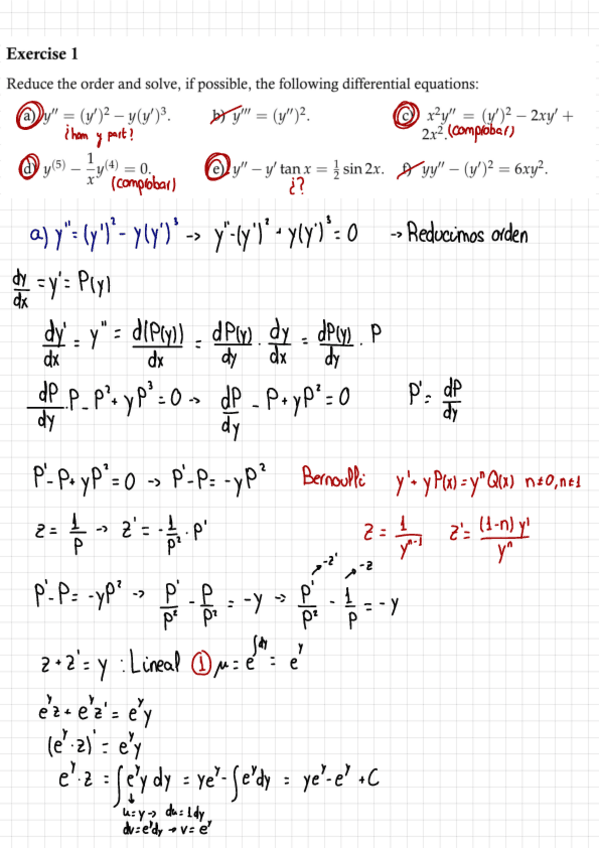 Exercise 1
Reduce the order and solve, if possible, the following differential equations:
a) y'' = (y')² − y(y')³.   b) y''' = (y'')².   c) x²y'' = (y')² − 2xy' +
¿hom y part?   2x². (comprobar)
d) y⁽⁵⁾ − 1/x y⁽⁴⁾ = 0.   e) y'' − y' tan x = ½ sin 2x.   f) yy'' − (y')² = 6xy².
(comprobar)   ¿?
a) y'' = (y')² − y(y')³ -> y'' − (y')² + y(y')³ = 0   -> Reducimos orden
dy/dx = y' = P(y)
dy'/dx = y'' = d(P(y))/dx = dP(y)/dy · dy/dx = dP(y)/dy · P
dP/dy · P − P² + yP³ = 0 -> dP/dy − P + yP² = 0   P' = dP/dy
P' − P + yP² = 0 -> P' − P = −yP²   Bernoulli   y' + yP(x) = yⁿQ(x) n≠0, n≠1
z = 1/P -> z' = −1/P² · P'   z = 1/yⁿ⁻¹   z' = (1−n)y'/yⁿ
-z'   -z
P' − P = −yP² -> P'/P² − P/P² = −y -> P'/P² − 1/P = −y
z + z' = y : Lineal ① μ = e^∫dy = e^y
e^y z + e^y z' = e^y y
(e^y · z)' = e^y y
e^y · z = ∫e^y y dy = ye^y − ∫e^y dy = ye^y − e^y + C
u = y -> du = 1dy
dv = e^y dy -> v = e^y